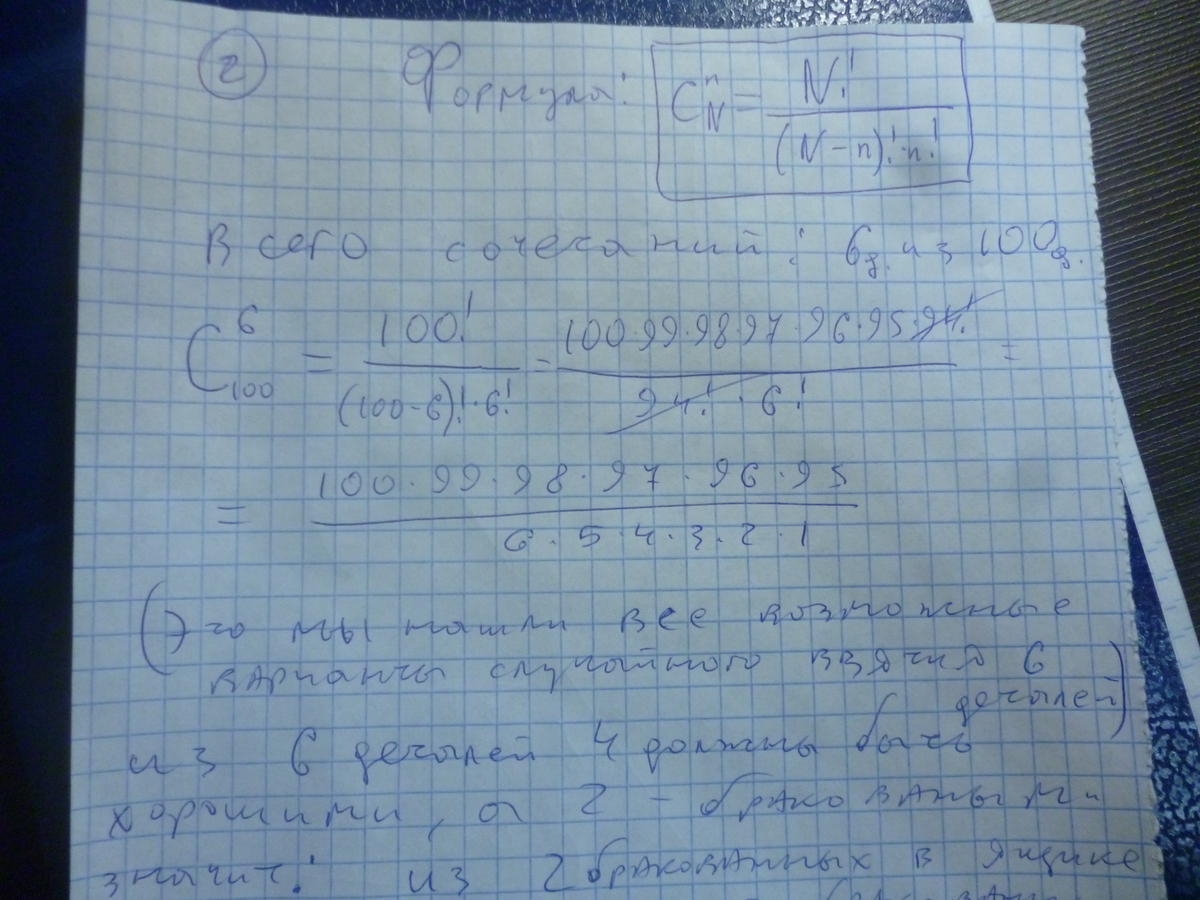 2 Формула: C_N^n = N! / (N-n)!·n!
Всего сочетаний: 6д. из 100д.
C_100^6 = 100! / (100-6)!·6! = 100·99·98·97·96·95·94! / 94!·6! =
= 100·99·98·97·96·95 / 6·5·4·3·2·1
(Это мы нашли все возможные
варианты случайного ввзятия 6
деталей)
из 6 деталей 4 должны быть
хорошими, а 2 - браковаными
значит: из 2 бракованных в ящике